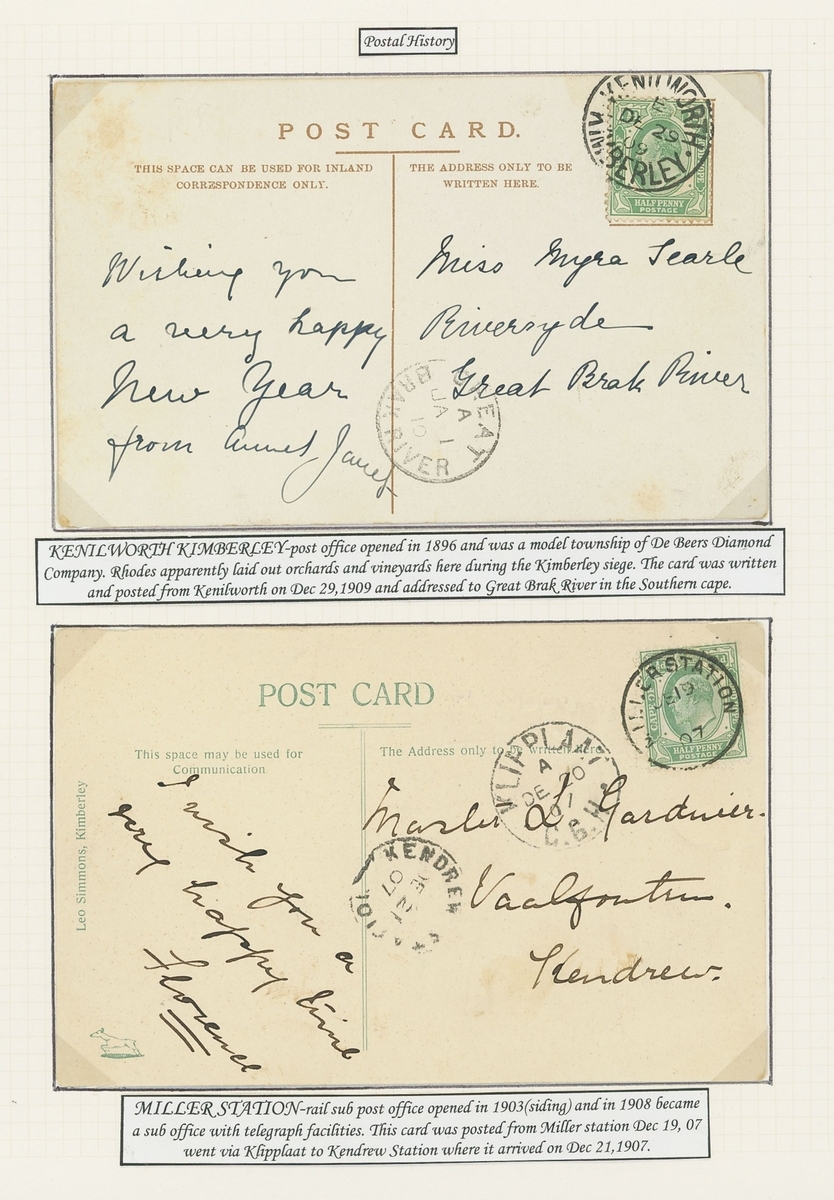 Postal History
POST CARD.
THIS SPACE CAN BE USED FOR INLAND
CORRESPONDENCE ONLY.
THE ADDRESS ONLY TO BE
WRITTEN HERE.
KENILWORTH
E
DE 29
09
KIMBERLEY.
HALFPENNY
POSTAGE
Wishing you
a very happy
New Year
from
Miss Myra Searle
Riversyde
Great Brak River
GREAT
A
JA 1
10
BRAK RIVER
KENILWORTH KIMBERLEY-post office opened in 1896 and was a model township of De Beers Diamond
Company. Rhodes apparently laid out orchards and vineyards here during the Kimberley siege. The card was written
and posted from Kenilworth on Dec 29,1909 and addressed to Great Brak River in the Southern cape.
POST CARD
This space may be used for
Communication
The Address only to be written here
MILLER STATION
DE 19
07
HALFPENNY
POSTAGE
KLIPPLAAT
A
DE 20
07
C.G.H.
KENDREW
DE
07
Leo Simmons, Kimberley
I wish you a
very happy time
Florence
Master L. Gardner.
Vaalfontein.
Kendrew.
MILLER STATION-rail sub post office opened in 1903(siding) and in 1908 became
a sub office with telegraph facilities. This card was posted from Miller station Dec 19, 07
went via Klipplaat to Kendrew Station where it arrived on Dec 21,1907.